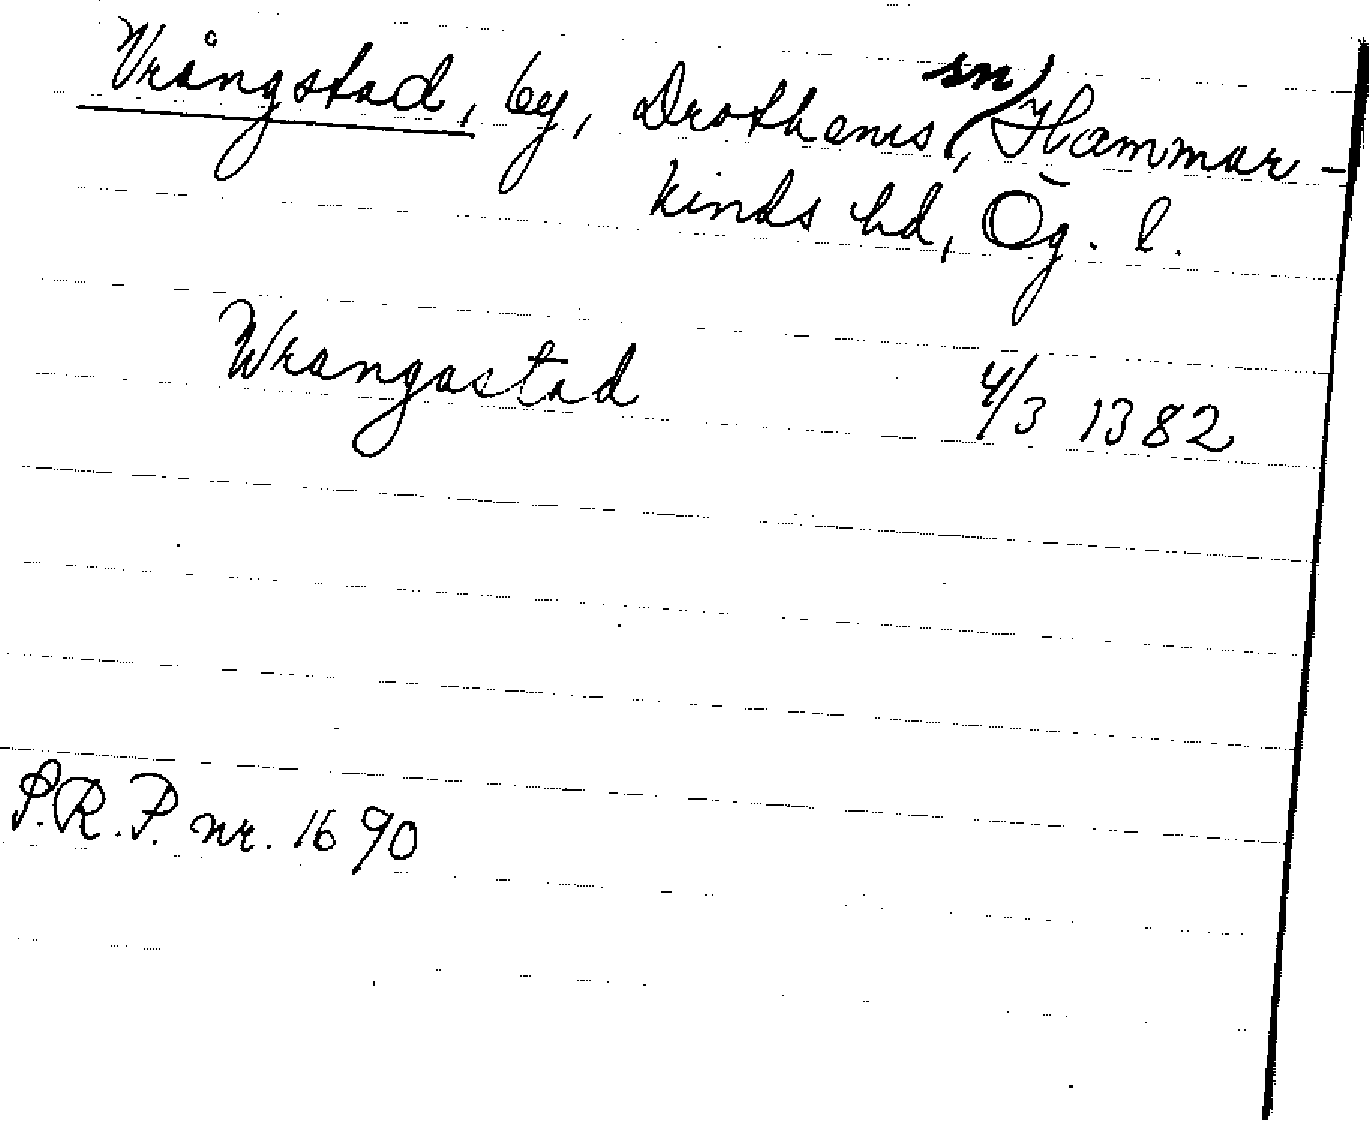 Vrångstad, by, Drothems sn, Hammar-
kinds hd, Ög. l.
Wrangastad 4/3 1382
S.R.P. nr. 1690